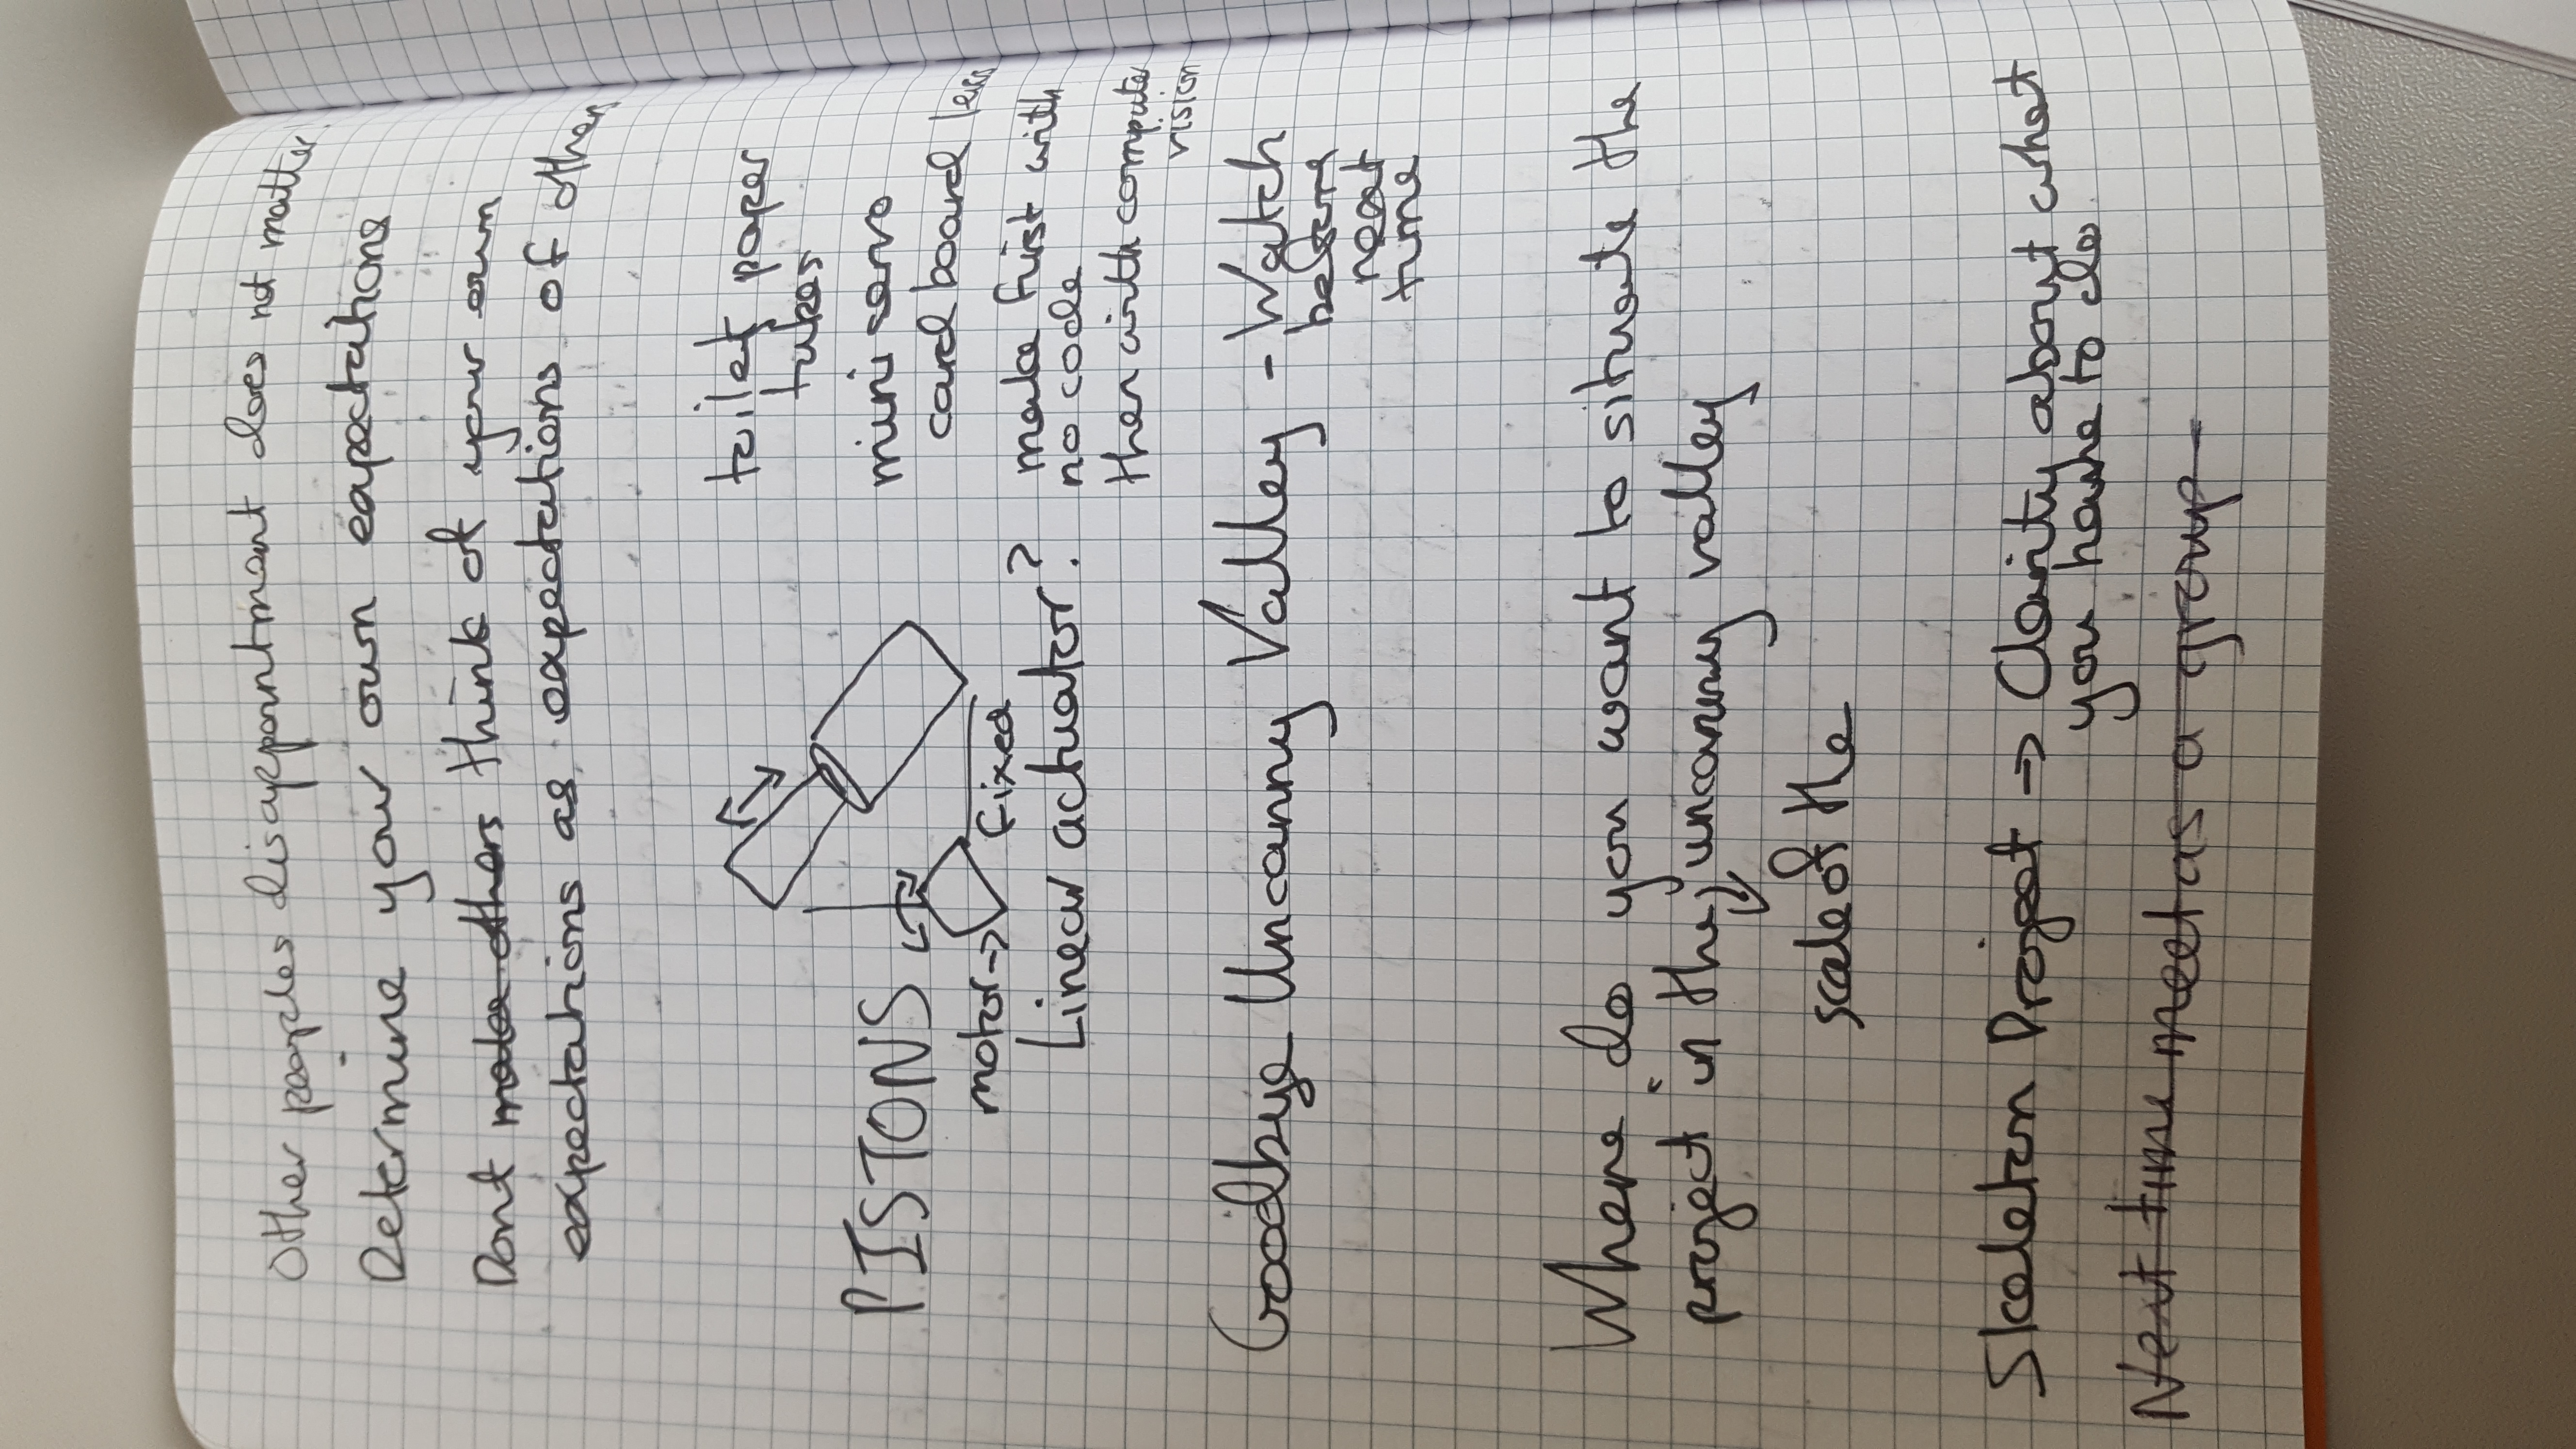 Other peoples disappointment does not matter.
Determine your own expectations
Dont make others think of your own
expectations as expectations of others
toilet paper
tubes
PISTONS
mini servo
card board
motor->
fixed
Linear actuator?
make first with
no code
then with computer
vision
Goodbye Uncanny Valley - Watch
before
next
time
Where do you want to situate the
project in the, uncanny valley
scale of the
Skeleton Project -> Clarity about what
you have to do
Next time meet as a group